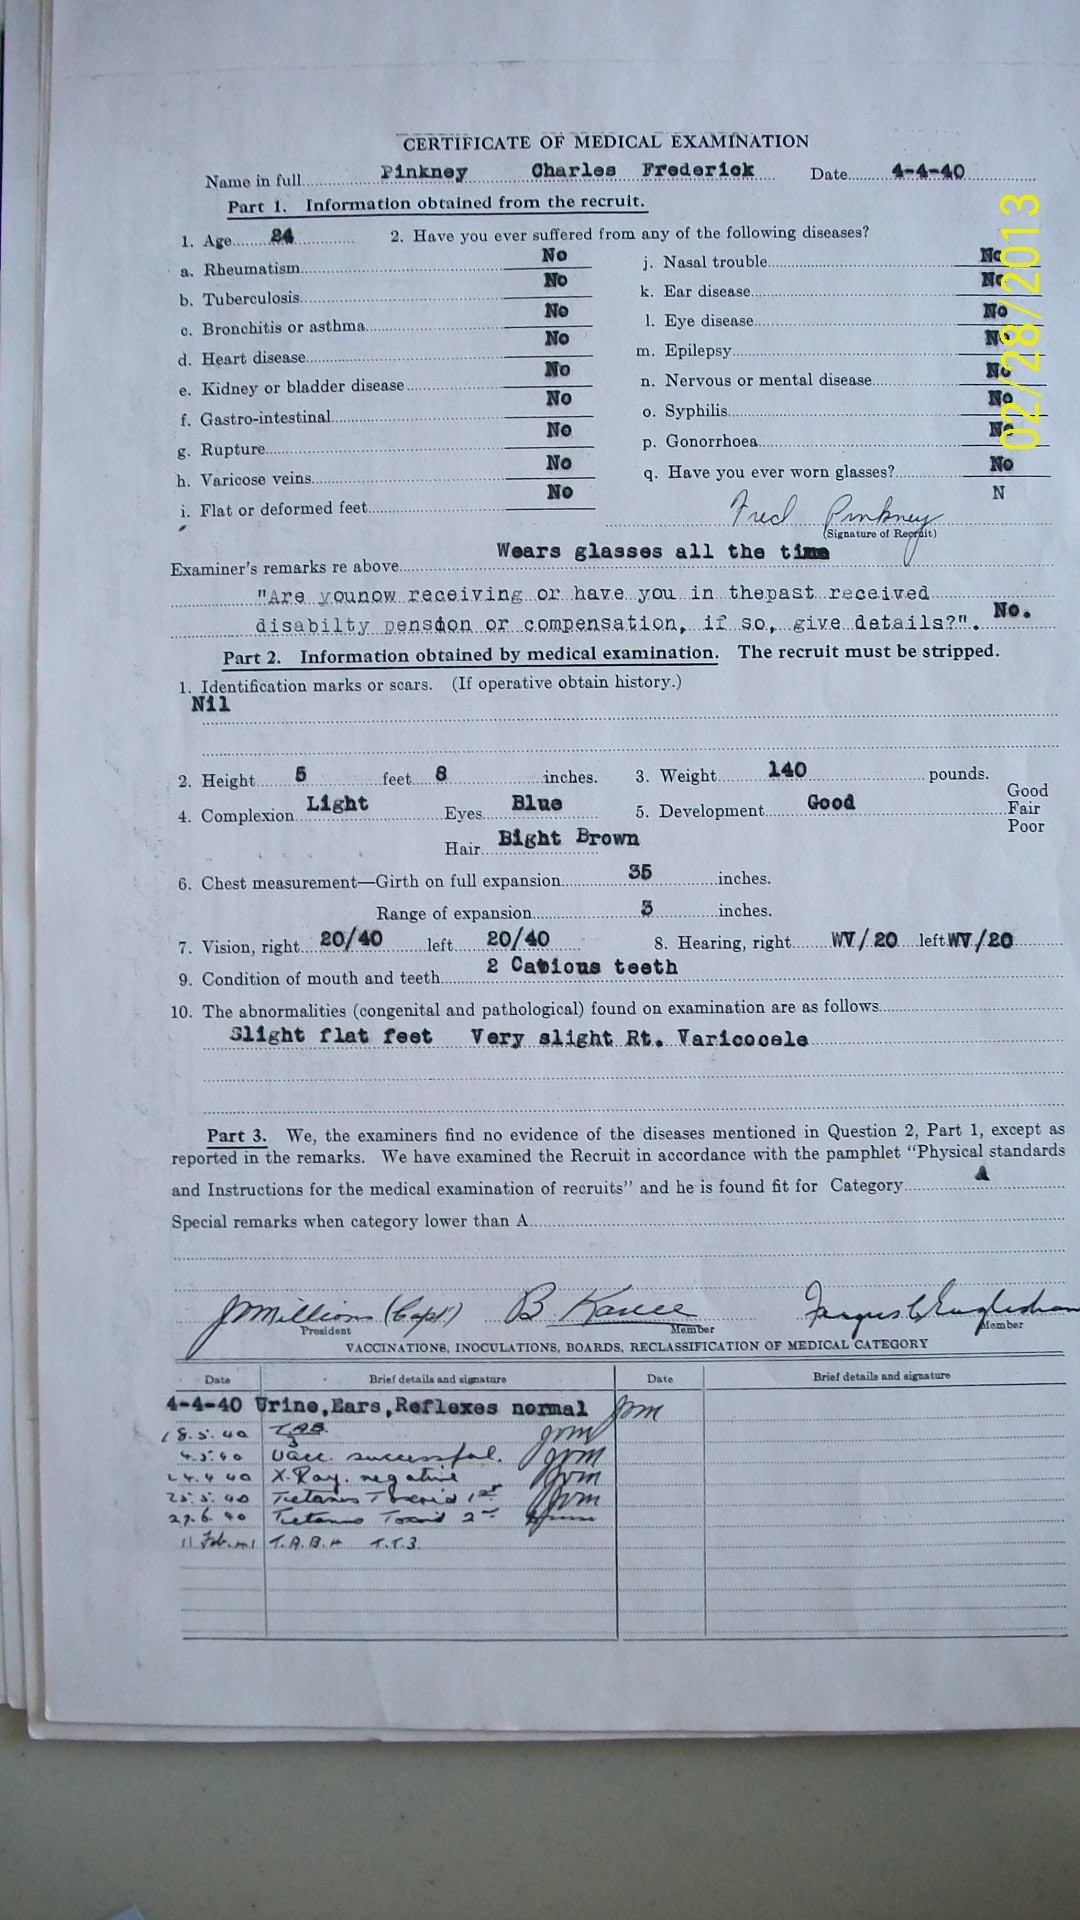 CERTIFICATE OF MEDICAL EXAMINATION
Name in full Pinkney Charles Frederick Date 4-4-40
Part 1. Information obtained from the recruit.
1. Age 24 2. Have you ever suffered from any of the following diseases?
a. Rheumatism No j. Nasal trouble No
b. Tuberculosis No k. Ear disease No
c. Bronchitis or asthma No l. Eye disease No
d. Heart disease No m. Epilepsy No
e. Kidney or bladder disease No n. Nervous or mental disease No
f. Gastro-intestinal No o. Syphilis No
g. Rupture No p. Gonorrhoea No
h. Varicose veins No q. Have you ever worn glasses? No
i. Flat or deformed feet No N
Fred Pinkney
(Signature of Recruit)
Examiner's remarks re above Wears glasses all the time
"Are younow receiving or have you in thepast received
disabilty pension or compensation, if so, give details?". No.
Part 2. Information obtained by medical examination. The recruit must be stripped.
1. Identification marks or scars. (If operative obtain history.)
Nil
2. Height 5 feet 8 inches. 3. Weight 140 pounds.
4. Complexion Light Eyes Blue 5. Development Good Good
Fair
Poor
Hair Bight Brown
6. Chest measurement—Girth on full expansion 35 inches.
Range of expansion 3 inches.
7. Vision, right 20/40 left 20/40 8. Hearing, right WV/20 left WV/20
9. Condition of mouth and teeth 2 Carious teeth
10. The abnormalities (congenital and pathological) found on examination are as follows
Slight flat feet Very slight Rt. Varicocele
Part 3. We, the examiners find no evidence of the diseases mentioned in Question 2, Part 1, except as
reported in the remarks. We have examined the Recruit in accordance with the pamphlet "Physical standards
and Instructions for the medical examination of recruits" and he is found fit for Category A
Special remarks when category lower than A
(Capt) B
President Member Member
VACCINATIONS, INOCULATIONS, BOARDS, RECLASSIFICATION OF MEDICAL CATEGORY
Date Brief details and signature Date Brief details and signature
4-4-40 Urine,Ears,Reflexes normal jvm
18.5.40 TAB. jvm
4.5.40 Vacc. successful. jvm
24.4 40 X.Ray. negative jvm
25.5.40 Tetanus Toxoid 1st jvm
27.6.40 Tetanus Toxoid 2nd
11 Feb. T.A.B. T.T.3.
02/28/2013